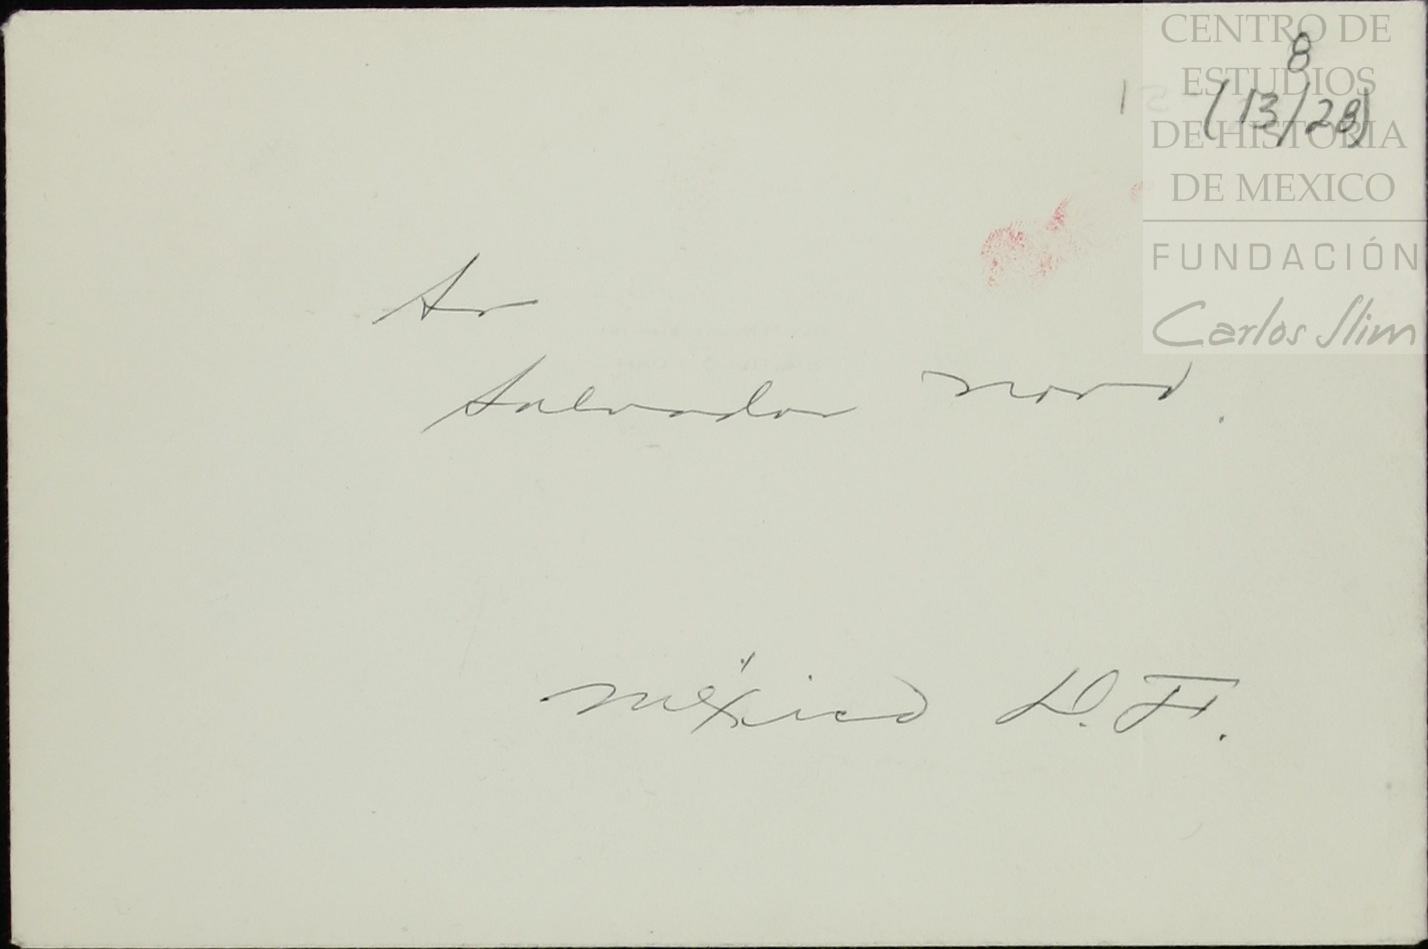 CENTRO DE
ESTUDIOS
DE HISTORIA
DE MEXICO
FUNDACIÓN
Carlos Slim
8
(13/28)
Sr
Salvador
México D.F.